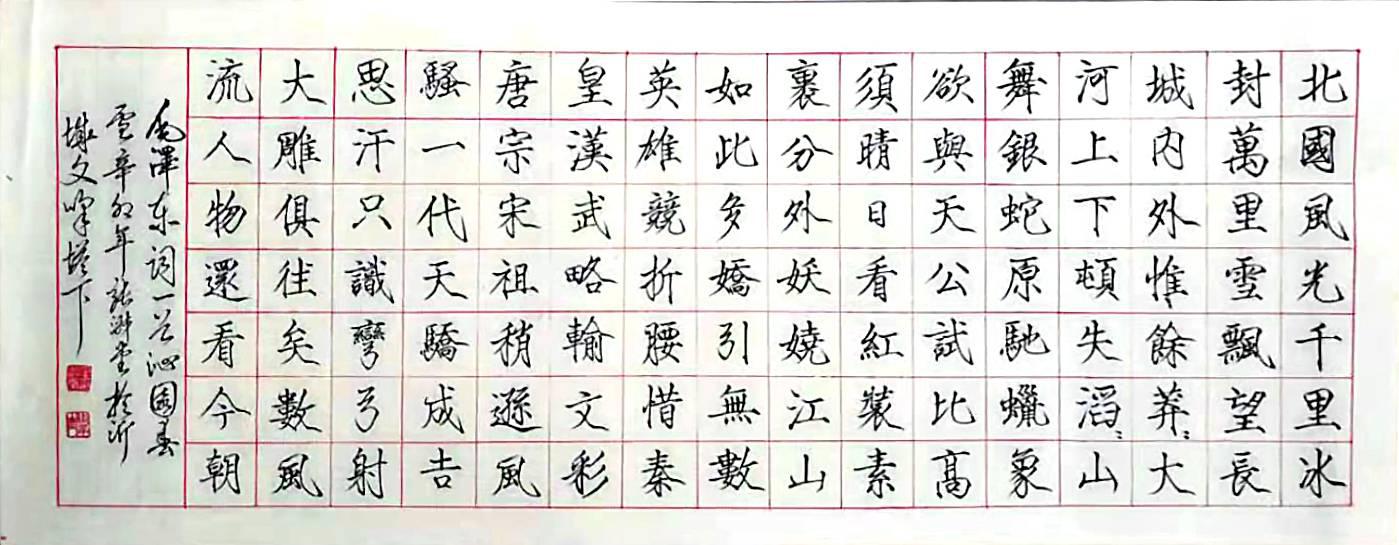 北國風光千里冰
封萬里雪飄望長
城內外惟餘莽〻大
河上下頓失滔〻山
舞銀蛇原馳蠟象
欲與天公試比高
須晴日看紅裝素
裹分外妖嬈江山
如此多嬌引無數
英雄競折腰惜秦
皇漢武略輸文彩
唐宗宋祖稍遜風
騷一代天驕成吉
思汗只識彎弓射
大雕俱往矣數風
流人物還看今朝
毛澤东词一首沁園春
雪辛卯年张於沂
城文峰塔下